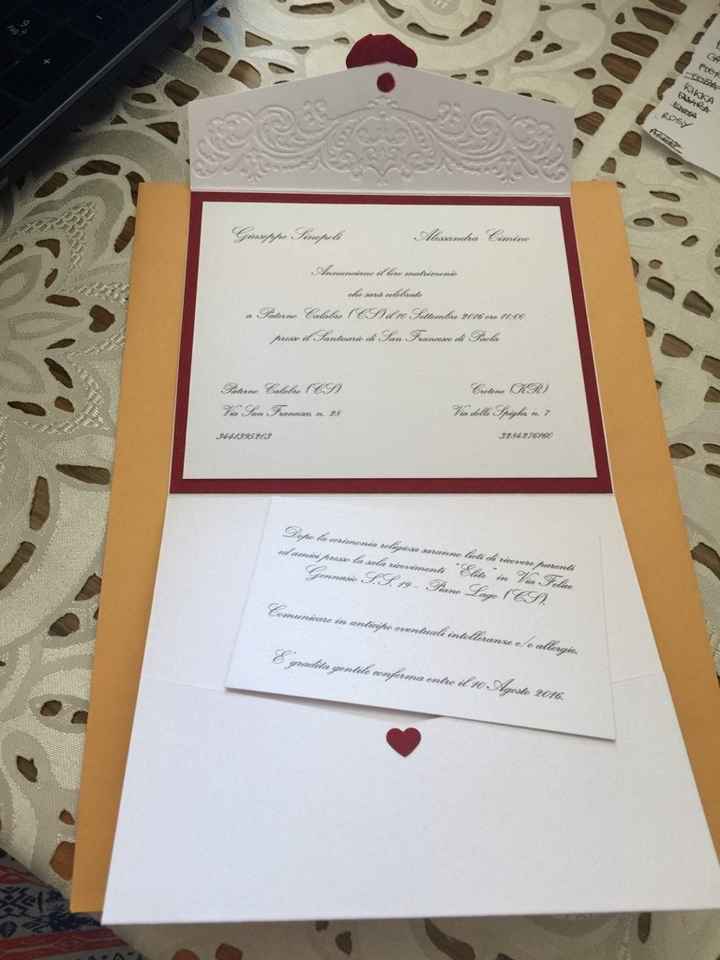 Giuseppe Sinopoli Alessandra Cimino
Annunciano il loro matrimonio
che sarà celebrato
a Paterno Calabro (CS) il 10 Settembre 2016 ore 11:00
presso il Santuario di San Francesco di Paola
Paterno Calabro (CS) Crotone (KR)
Via San Francesco, n. 28 Via delle Spighe, n. 7
3441395203 3284276160
Dopo la cerimonia religiosa saranno lieti di ricevere parenti
ed amici presso la sala ricevimenti "Elite" in Via Felice
Gennasio S.S. 19 - Piano Lago (CS).
Comunicare in anticipo eventuali intolleranze e/o allergie.
E' gradita gentile conferma entro il 10 Agosto 2016.
KIKKA
ROSY